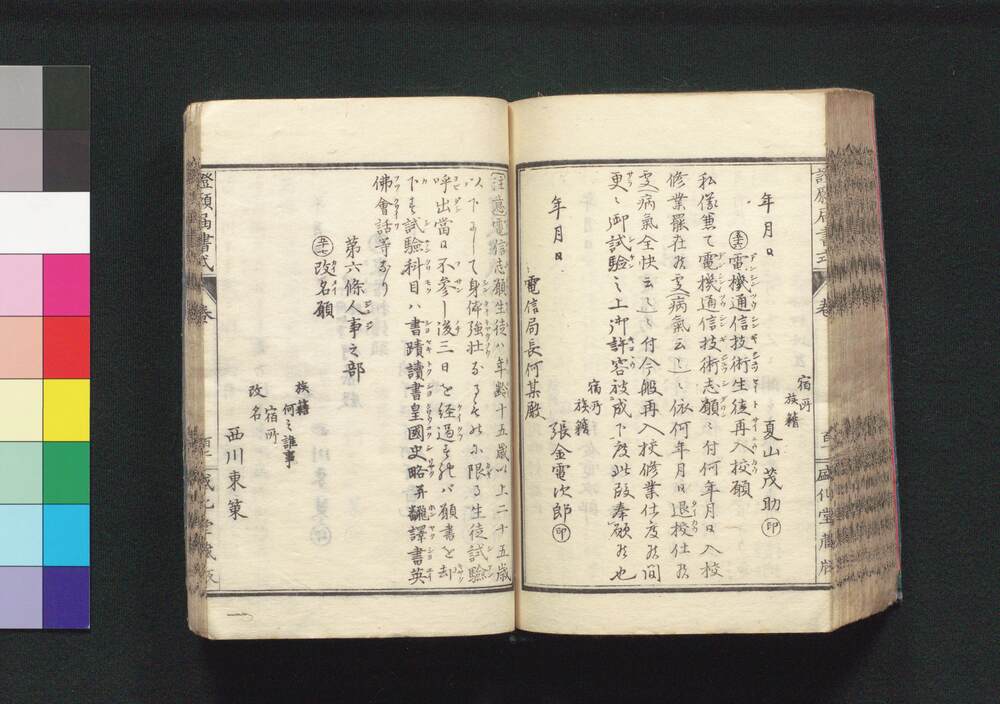 年月日
宿所
族籍
夏山茂助㊞
電機通信技術生徒再入校願
私儀兼て電機通信技術志願ニ付何年月日入校
修業罷在候処(病氣云々)ニ依何年月日退校仕候
処(病氣全快云々)ニ付今般再入校修業仕度候間
更ニ御試験之上御許容被成下度此段奉願候也
宿所
族籍
年月日
張金電次郎㊞
電信局長何某殿
電信志願生徒ハ年齢十五歳以上二十五歳
以下にして身体強壮なるものに限る生徒試験
呼出當日不參し後三日を経過するときハ願書を却
下す試験科目ハ書蹟讀書皇國史略并飜譯書英
佛會話等なり
第六條人事之部
改名願
族籍
何之誰事
宿所
改名
西川東策
證願届書式
巻
盛化堂蔵版